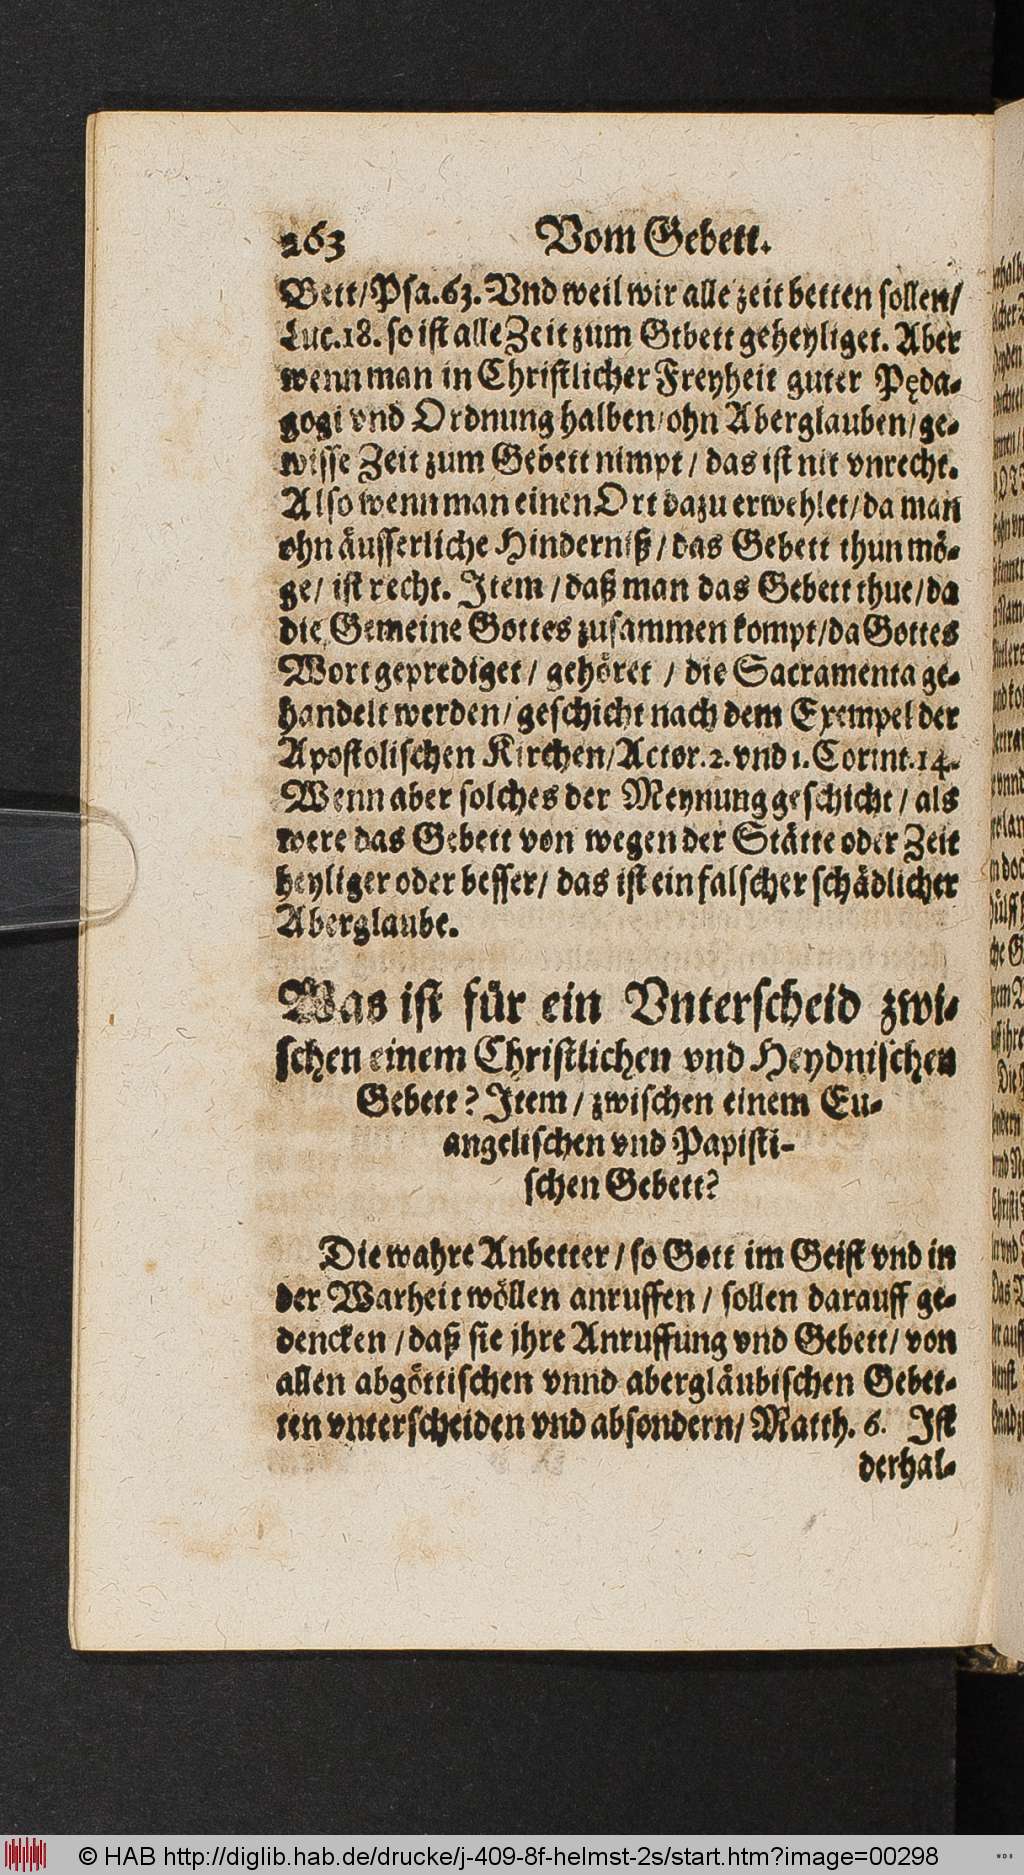 263 Vom Gebett.
Bett/Psa.63. Vnd weil wir alle zeit betten sollen/
Luc.18. so ist alle Zeit zum Gebett geheyliget. Aber
wenn man in Christlicher Freyheit guter Pęda-
gogi vnd Ordnung halben/ohn Aberglauben/ge-
wisse Zeit zum Gebett nimpt/das ist nit vnrecht.
Also wenn man einen Ort dazu erwehlet/da man
ohn äusserliche Hinderniß/das Gebett thun mö-
ge/ist recht. Item/daß man das Gebett thue/da
die Gemeine Gottes zusammen kompt/da Gottes
Wort geprediget/gehöret/die Sacramenta ge-
handelt werden/geschicht nach dem Exempel der
Apostolischen Kirchen/Actor.2. vnd 1. Corint.14.
Wenn aber solches der Meynung geschicht/als
were das Gebett von wegen der Stätte oder Zeit
heyliger oder besser/das ist ein falscher schädlicher
Aberglaube.
Was ist für ein Vnterscheid zwi-
schen einem Christlichen vnd Heydnischen
Gebett? Item/zwischen einem Eu-
angelischen vnd Papisti-
schen Gebett?
Die wahre Anbetter/so Gott im Geist vnd in
der Warheit wöllen anruffen/sollen darauff ge-
dencken/daß sie ihre Anruffung vnd Gebett/von
allen abgöttischen vnnd abergläubischen Gebet-
ten vnterscheiden vnd absondern/Matth. 6. Ist
derhal-
© HAB http://diglib.hab.de/drucke/j-409-8f-helmst-2s/start.htm?image=00298